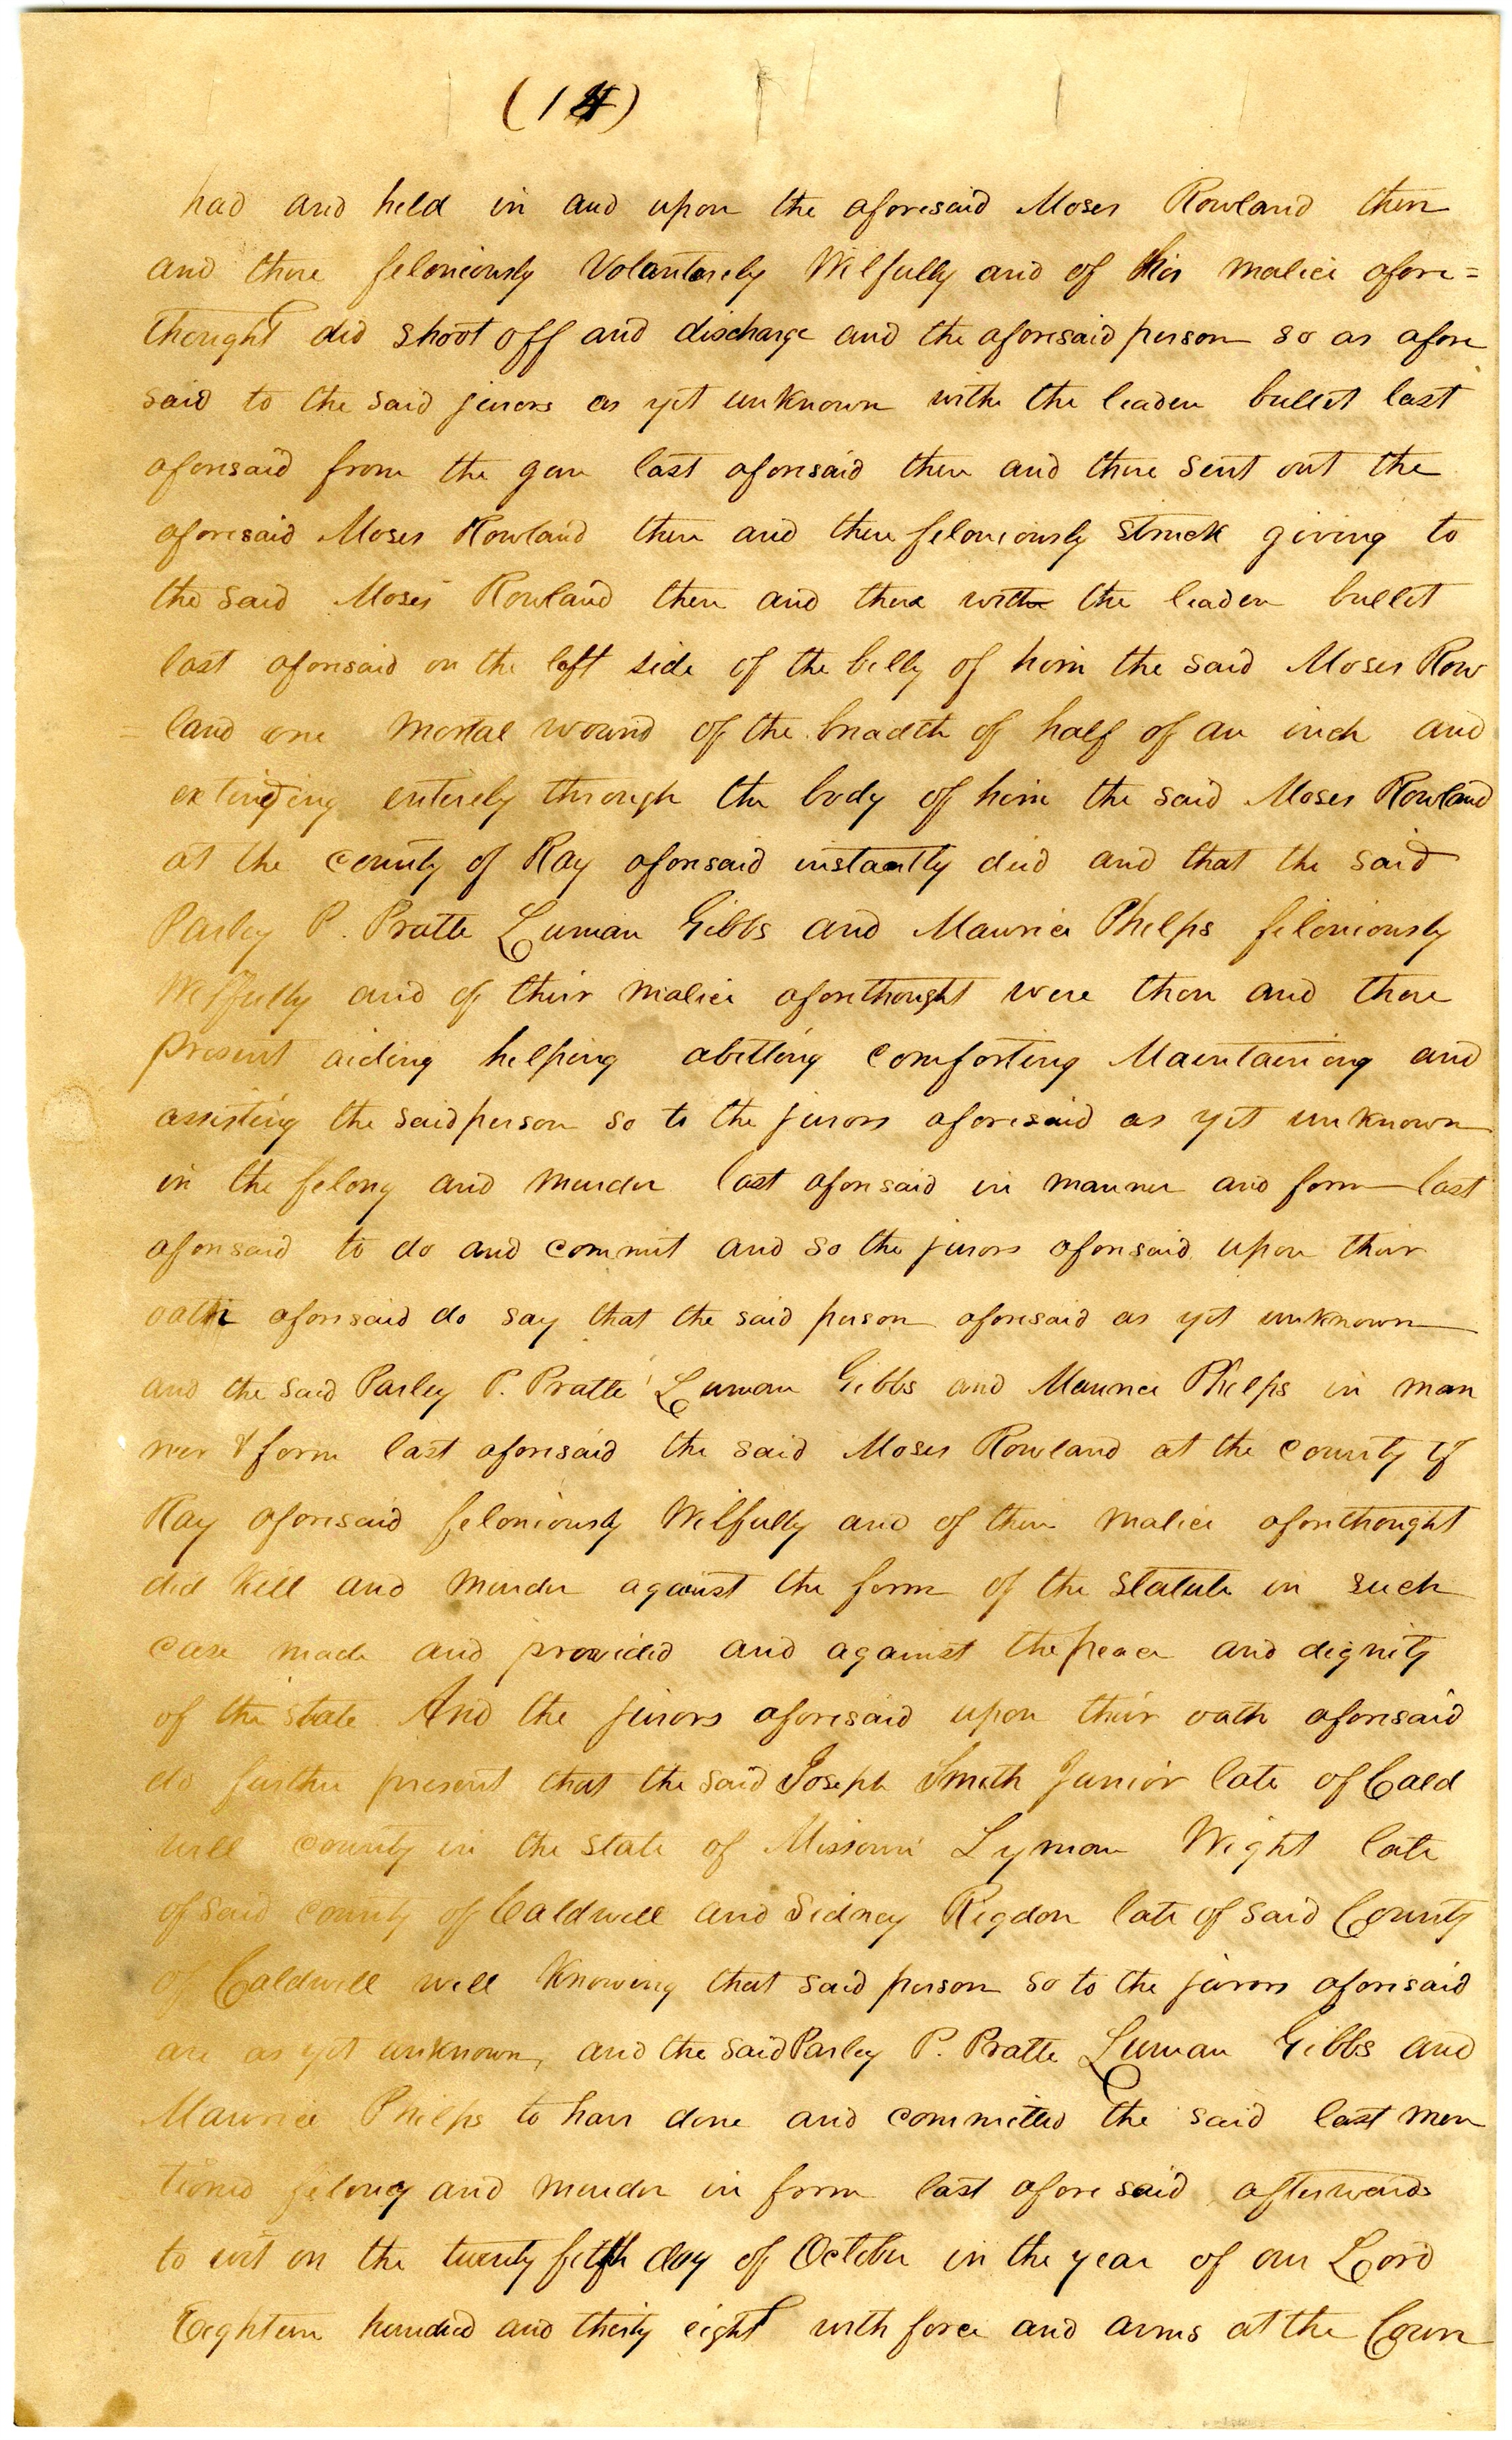 (14)
had and held in and upon the aforesaid Moses Rowland then
and there feloniously Volantarely Wilfully and of his malice afore=
thought did shoot off and discharge and the aforesaid person so as afore
said to the said jurors as yet unknown with the leaden bullet last
aforesaid from the gun last aforesaid then and there sent out the
aforesaid Moses Rowland then and there feloniously struck giving to
the said Moses Rowland then and there with the leaden bullet
last aforesaid on the left side of the belly of him the said Moses Row
= land one mortal wound of the breadth of half of an inch and
extending entirely through the body of him the said Moses Rowland
at the county of Ray aforesaid instantly died and that the said
Parley P. Pratte Luman Gibbs and Maurice Phelps feloniously
Wilfully and of their malice aforethought were then and there
present aiding helping abetting comforting Maintaining and
assisting the said person so to the jurors aforesaid as yet unknown
in the felony and murder last aforesaid in manner and form last
aforesaid to do and commit and so the jurors aforesaid upon their
oath aforesaid do say that the said person aforesaid as yet unknown
and the said Parley P. Pratte Luman Gibbs and Maurice Phelps in man
ner & form last aforesaid the said Moses Rowland at the county of
Ray aforesaid feloniously Wilfully and of their malice aforethought
did kill and murder against the form of the statute in such
case made and provided and against the peace and dignity
of the state. And the jurors aforesaid upon their oath aforesaid
do further present that the said Joseph Smith Junior late of Cald
well county in the state of Missouri Lyman Wight late
of said county of Caldwell and Sidney Rigdon late of said County
of Caldwell well knowing that said person so to the jurors aforesaid
are as yet unknown, and the said Parley P. Pratte Luman Gibbs and
Maurice Phelps to have done and committed the said last men
tioned felony and murder in form last aforesaid afterwards
to wit on the twenty fifth day of October in the year of our Lord
Eighteen hundred and thirty eight with force and arms at the Coun